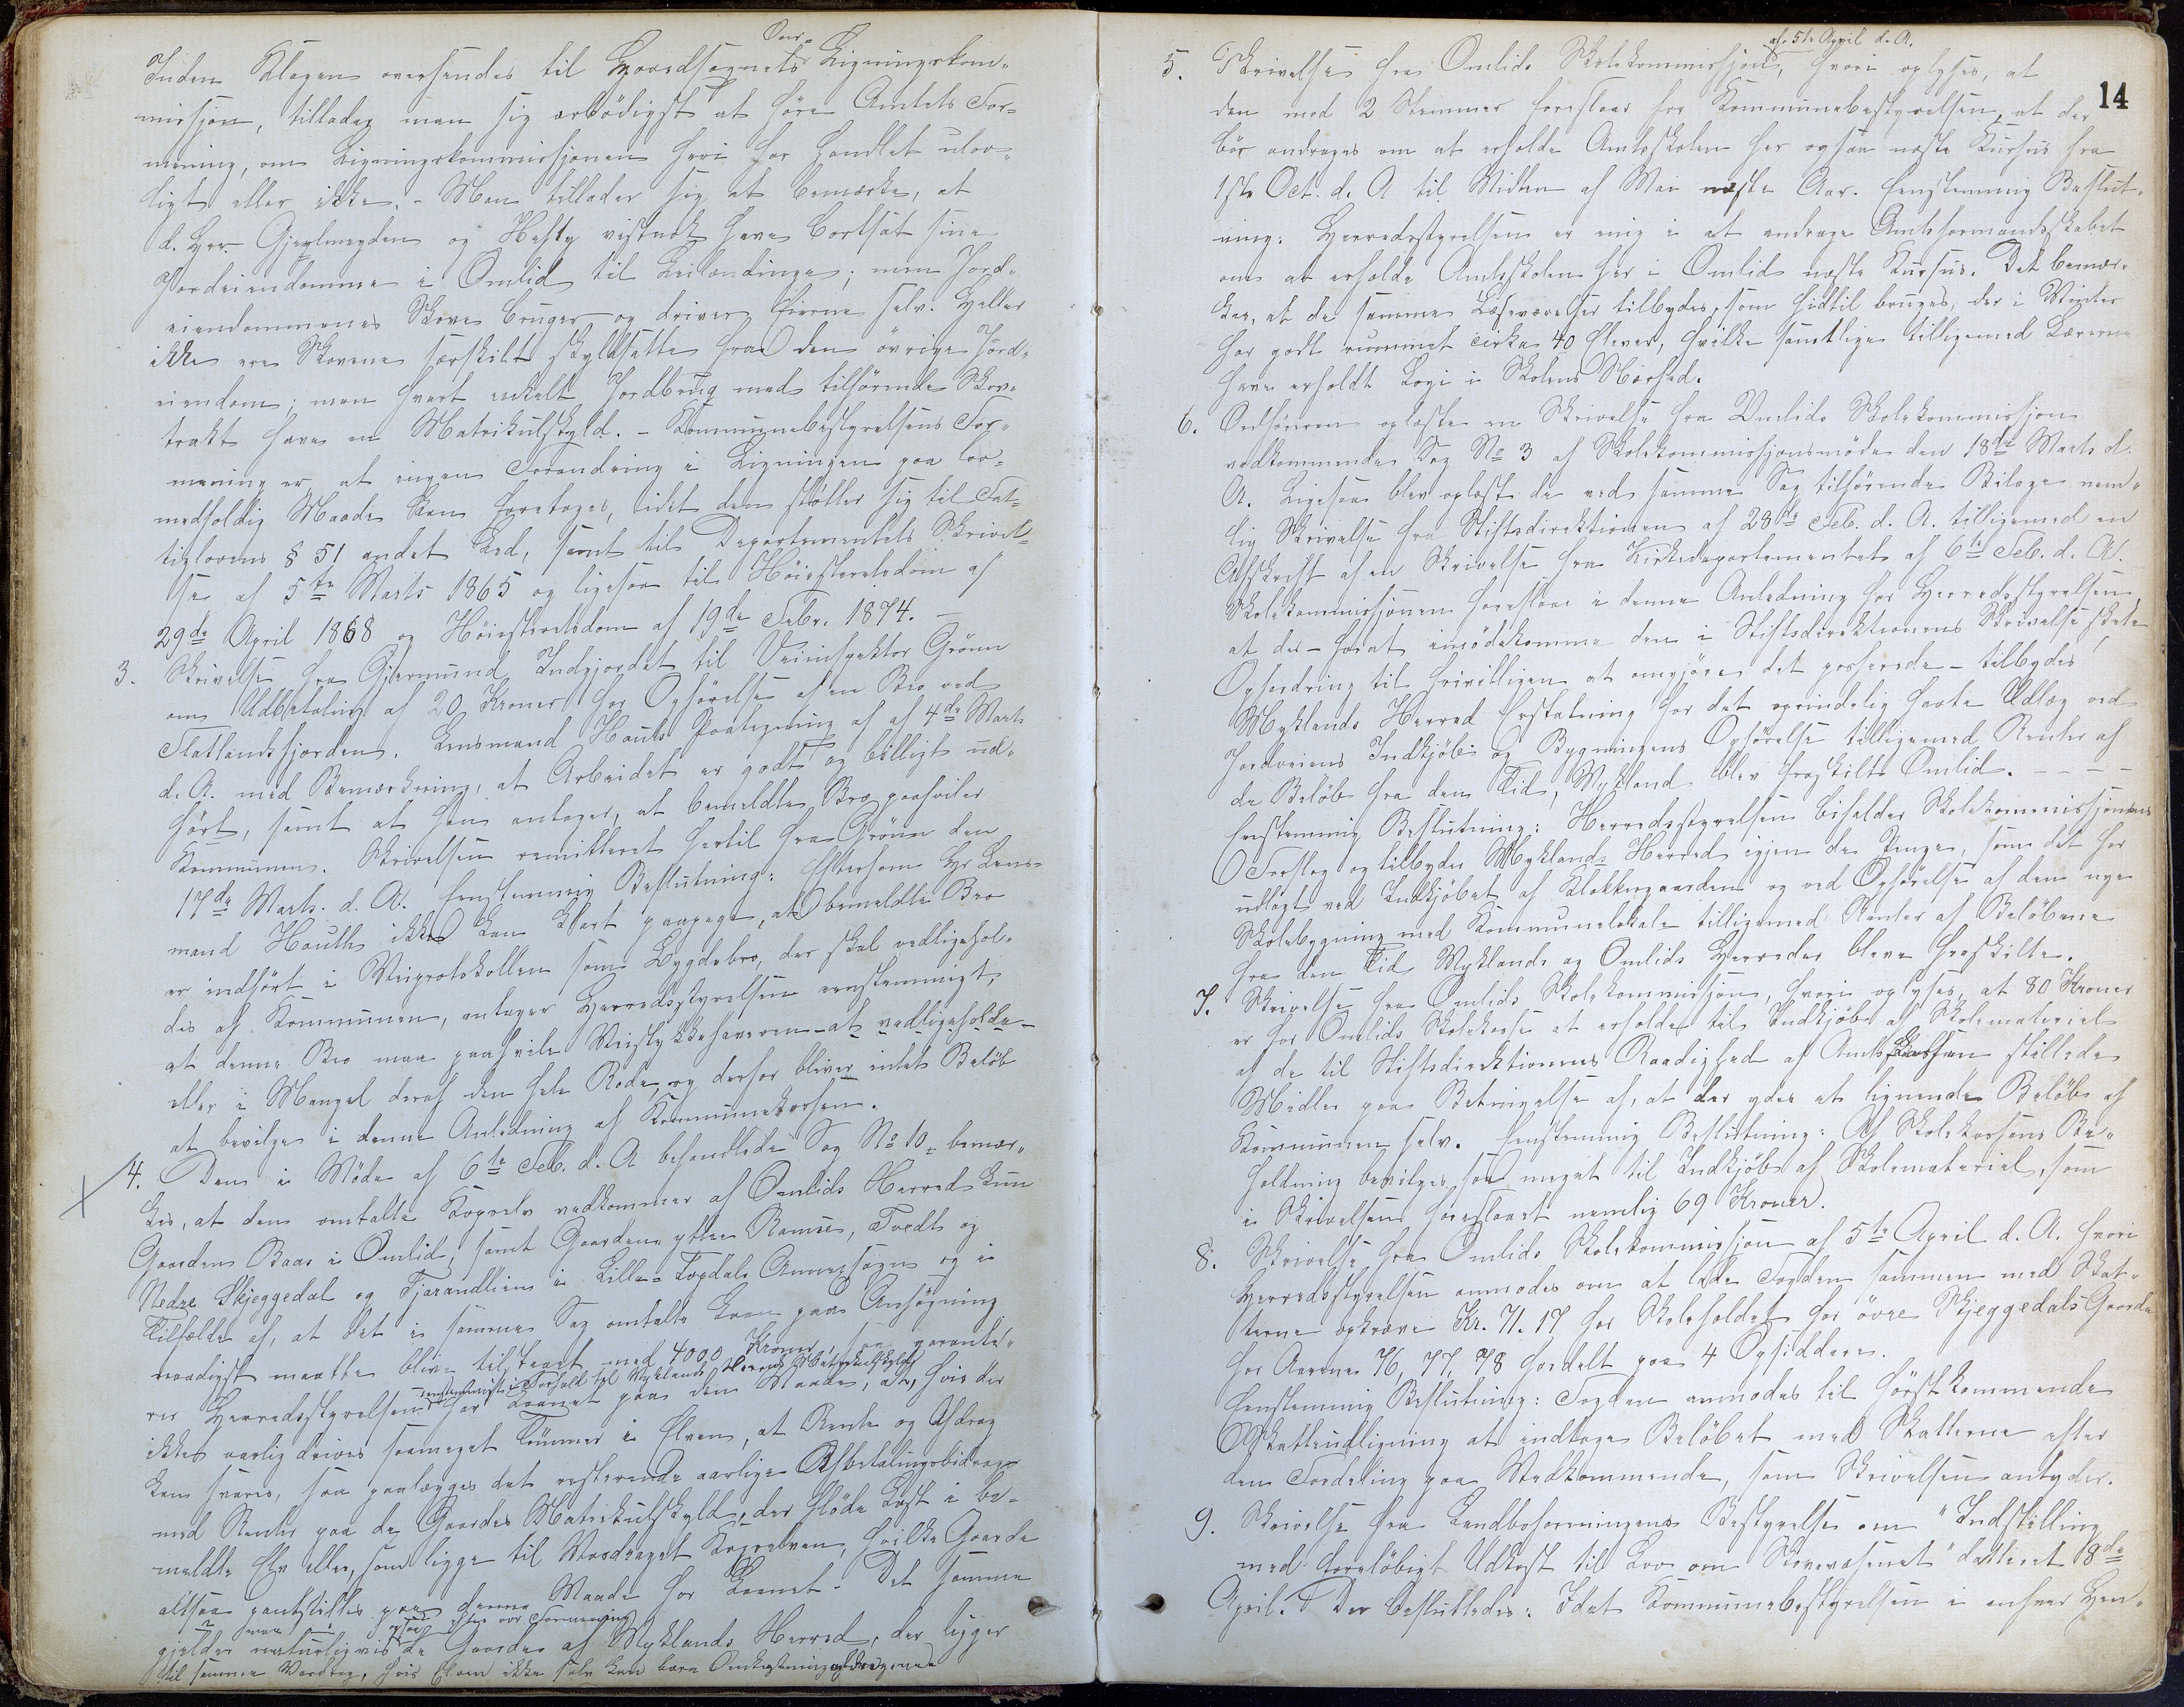 Inden Klagen oversendes til Gaardsognets Over- Ligningskom-
missjon, tillader man sig ærbödigst at höre Amtets For-
mening, om Ligningskommissjonen heri har handlet ulov-
ligt eller ikke. - Man tillader sig at bemærke, at
d. Hrr. Gjerlmeyden og Hefty vistnok have bortsat sine
Jordeiendomme i Omlid til Leilændinge; men Jord-
eiendommenes Skove bruger og driver Eierne selv. Heller
ikke ere Skovene særskilt skyldsatte fra den övrige Jord-
eiendom; men hvert enkelt Jordbrug med tilhörende Skov-
trakt have en Matrikulskyld. - Kommunebestyrelsens For-
mening er, at ingen Forandring i Ligningen paa lov-
medholdig Maade kan foretages, idet den stötter sig til Fat-
tiglovens § 51 andet Led, samt til Departementets Skrivel-
se af 5te Marts 1865 og ligesaa til Höiesteretsdom af
29de April 1868 og Höiesteretsdom af 19de Febr. 1874. -
3. Skrivelse fra Gjermund Indgjordet til Veiinspektör Grönn
om Udbetaling af 20 Kroner for Opförelse af en Bro ved
Flatlandsfjorden. Lensmand Houths Paategning af af 4de Marts
d. A. med Bemærkning, at Arbeidet er godt og billigt ud-
fört, samt at han antager, at bemeldte Bro paahviler
Kommunen. Skrivelsen remitteret hertil fra Grönn den
17de Marts. d. A. Enstemmig Beslutning: Eftersom Hr. Lens-
mand Houth ikke kan klart paapege, at bemeldte Bro
er indfört i Veiprotokollen som Bygdebro, der skal vedligehol-
des af Kommunen, antager Herredsstyrelsen eenstemmigt,
at denne Bro maa paahvile Veistykkehaveren - at vedligeholde -
eller i Mangel deraf den hele Rode, og derfor bliver intet Belöb
at bevilge i denne Anledning af Kommunekassen.
4. Den i Möde af 6te Feb. d. A behandlede Sag No 10 - bemær-
kes, at den omtalte Kopselv vedkommer af Omlids Herred kun
Gaarden Baas i Omlid, samt Gaardene yttre Ramse, Tvedt og
Nedre Skjeggedal og Fjærandlien i Lille-Topdals Annexsogn og i
Tilfælde af, at det i samme Sag omtalte Laan paa Ansögning
naadigst maatte blive tilstaaet med 4000 Kroner, saa garante-
rer Herredsstyrelsen enstemmigt i Forhold til Myklands Herreds Matrikulskyld for Laanet paa den Maade, at, hvis der
ikke aarlig drives saameget Tömmer i Elven, at Rente og Afdrag
kan svares, saa paalægges det resterende aarlige Afbetalingsbidrag
med Renter paa de Gaardes Matrikulskyld, der flöde Last i be-
meldte Elv eller, som ligge til Vasdraget Kopselven, hvilke Gaarde
altsaa pantstilles paa denne Maade for Laanet. Det samme
gjelder naturligvis ogsaa efter vor Formening de Gaarde af Myklands Herred, der ligger
til samme Vasdrag, hvis Elven ikke selv kan bære Omkostningsbidragene
14
5. Skrivelse fra Omlids Skolekommissjon, af 5te April d. A. hvori oplyses, at
den med 2 Stemmer foreslaar for Kommunebestyrelsen, at der
bör andrages om at erholde Amtsskolen her ogsaa næste Kursus fra
1ste Oct. d. A til Midten af Mai næste Aar. Enstemmig Beslut-
ning: Herredsstyrelsen er enig i at andrage Amtsformandsskabet
om at erholde Amtsskolen her i Omlid næste Kursus. Det bemær-
kes, at de samme Læseværelser tilbydes, som hidtil bruges, der i Vinter
har godt rummet cirka 40 Elever, hvilke samtlige tilligemed Lærerne
have erholdt Logi i Skolens Nærhed.
6. Ordföreren oplæste en Skrivelse fra Omlids Skolekommissjon
vedkommende Sag No 3 af Skolekommissjonsmöde den 18de Marts d.
A. Ligesaa blev oplæst de ved samme Sag tilhörende Bilage nem-
lig Skrivelse fra Stiftsdirektionen af 28de Feb. d. A. tilligemed en
Afskrift af en Skrivelse fra Kirkedepartementet af 6te Feb. d. A.
Skolekommissjonen foreslaar i denne Anledning for Herredsstyrelsen,
at der - forat imödekomme den i Stiftsdirektionens Skrivelse skete
Opfordring til frivilligen at omgjöre det passerede - tilbydes
Myklands Herred Erstatning for det oprindelig havte Udlæg ved
Jordveiens Indkjöb og Bygningens Opförelse tilligemed Renter af
de Belöb fra den Tid, Mykland blev fraskilt Omlid. - - -
Enstemmig Beslutning: Herredsstyrelsen bifalder Skolekommissjonens
Forslag og tilbyder Myklands Herred igjen de Penge, som det har
udlagt ved Indkjöbet af Klokkergaarden og ved Opförelse af den nye
Skolebygning med Kommunelokale tilligemed Renter af Belöbene
fra den Tid Myklands og Omlids Herreder bleve fraskilte.
7. Skrivelse fra Omlids Skolekommissjon, hvori oplyses, at 80 Kroner
er for Omlids Skolekasse at erholde til Indkjöb af Skolemateriel
af de til Stiftsdirektionens Raadighed af Amtsskolekassen stillede
Midler paa Betingelse af, at der ydes et lignende Belöb af
Kommunen selv. Enstemmig Beslutning: Af Skolekassens Be-
holdning bevilges saa meget til Indkjöb af Skolemateriel, som
i Skrivelsen foreslaaet nemlig 69 Kroner.
8. Skrivelse fra Omlids Skolekommissjon af 5te April d. A. hvori
Herredsstyrelsen anmodes om at lade Fogden sammen med Skat-
terne opkræve Kr. 71.17 for Skoleholdet for övre Skjeggedals Gaarde
for Aarene 76, 77, 78 fordelt paa 4 Opsiddere.
Enstemmig Beslutning: Fogden anmodes til förstkommende
Skatteudligning at indtage Belöbet med Skatterne efter
den Fordeling paa Vedkommende, som Skrivelsen antyder.
9. Skrivelse fra Landboforeningens Bestyrelse om "Indstilling
med foreløbigt Udkast til Lov om Skovvæsenet" datteret 8de
April. Der besluttedes: Idet Kommunebestyrelsen i enhver Hen-